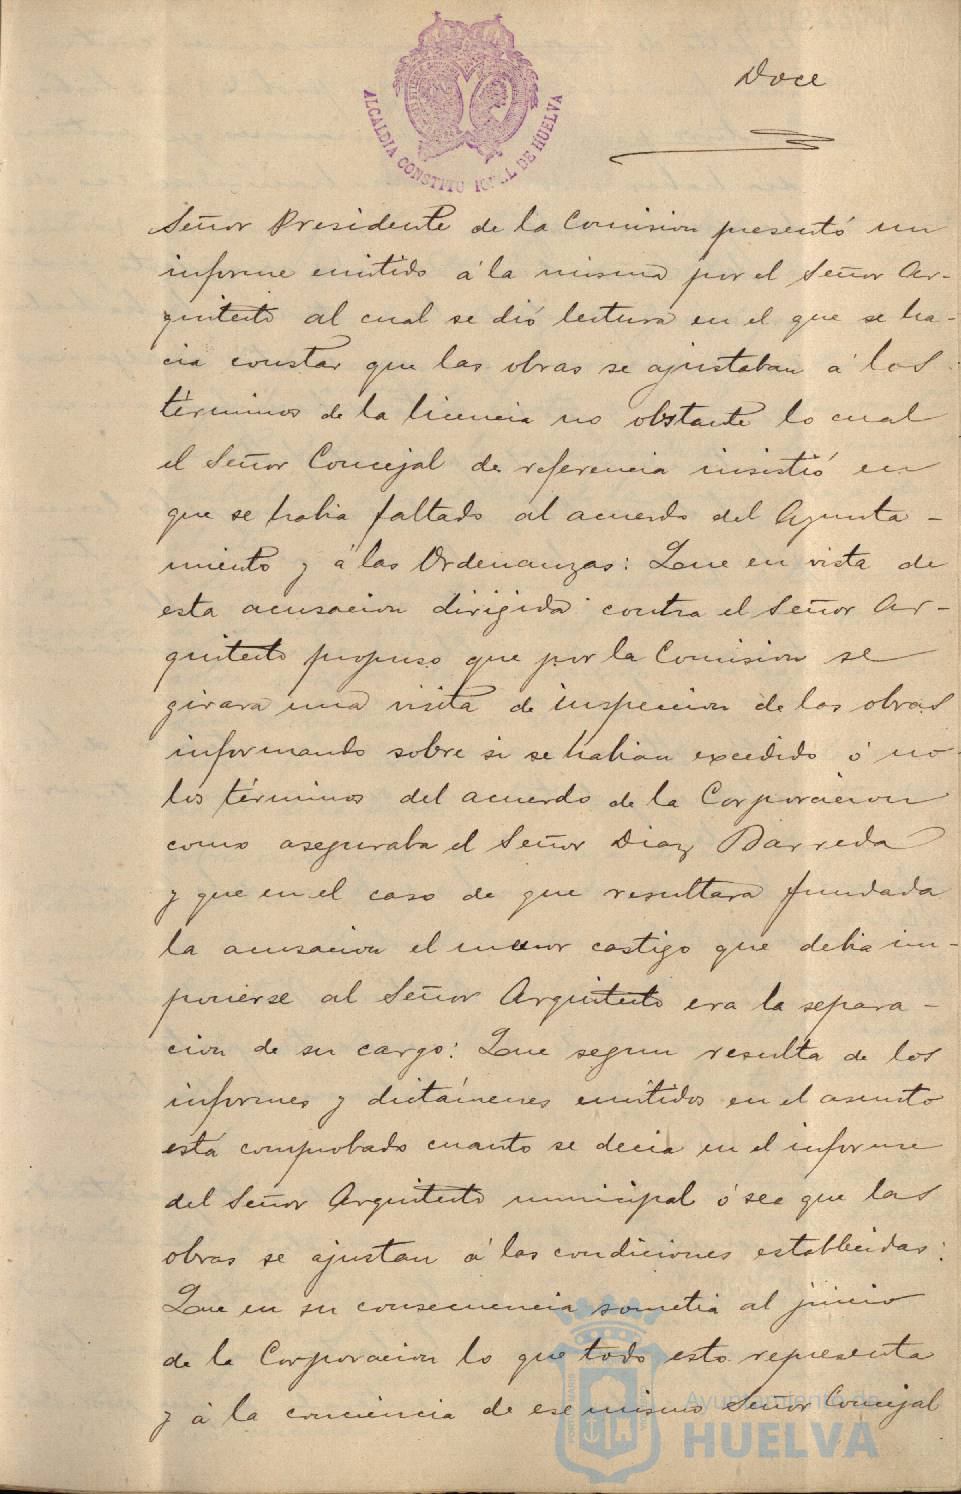 Doce
ALCALDIA CONSTITUCIONAL DE HUELVA
Señor Presidente de la Comision presentó un
informe emitido á la misma por el Señor Ar-
quitecto al cual se dió lectura en el que se ha-
cia constar que las obras se ajustaban á los
términos de la licencia no obstante lo cual
el Señor Concejal de referencia insistió en
que se habia faltado al acuerdo del Ayunta-
miento y á las Ordenanzas: Que en vista de
esta acusacion dirigida contra el Señor Ar-
quitecto propuso que por la Comision se
girara una visita de inspeccion de las obras
informando sobre si se habian excedido ó no
los términos del acuerdo de la Corporacion
como aseguraba el Señor Diaz Barreda
y que en el caso de que resultara fundada
la acusacion el menor castigo que debia im-
ponerse al Señor Arquitecto era la separa-
cion de su cargo: Que segun resulta de los
informes y dictámenes emitidos en el asunto
está comprobado cuanto se decia en el informe
del Señor Arquitecto municipal ó sea que las
obras se ajustan á las condiciones establecidas:
Que en su consecuencia sometia al juicio
de la Corporacion lo que todo esto representa
y á la conciencia de ese mismo Señor Concejal
Ayuntamiento de
HUELVA